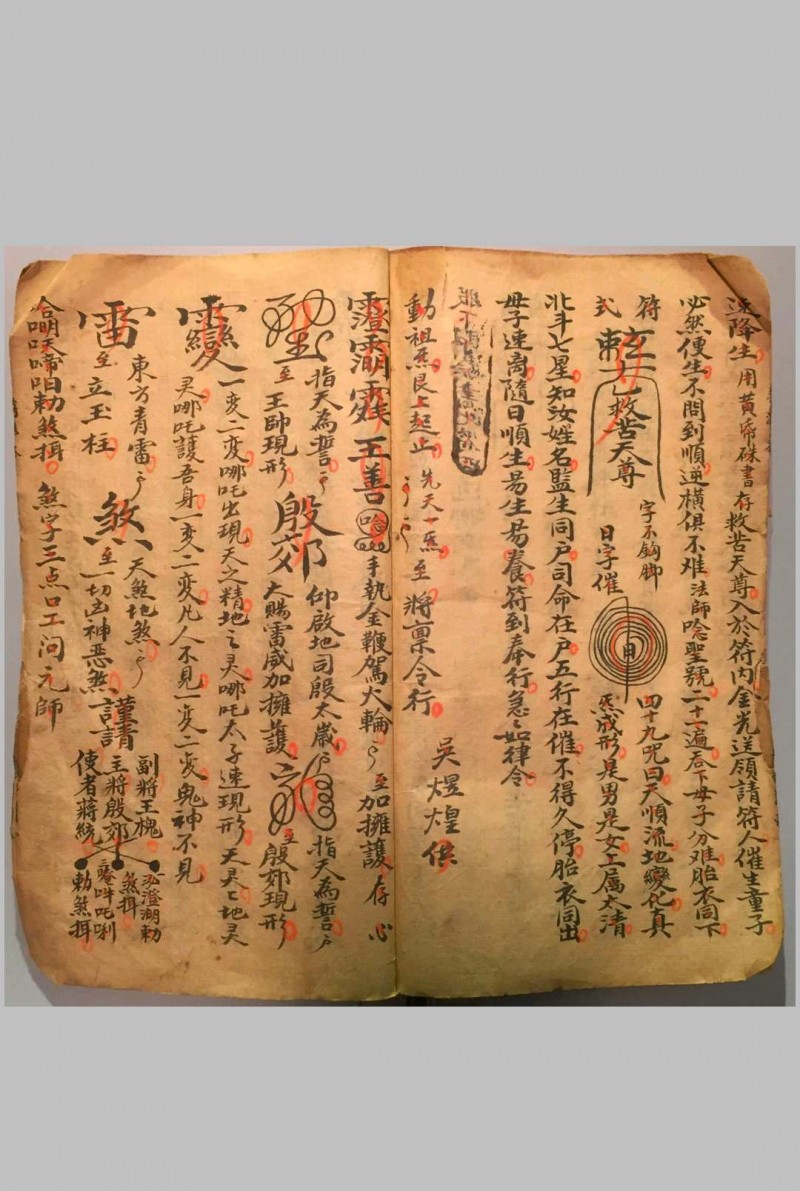 速降生用黃帋硃書存救苦天尊入於符内金光送領請符人催生童子
必然便生不問到順逆橫俱不难法師唸聖號二十一遍吞下母子分难胎衣同下
符式
救苦天尊
字不鈎脚
日字催
四十九咒曰天順流地變化真
炁成形是男是女上属太清
北斗七星知汝姓名監生同户司命在户五行在催不得久停胎衣同出
母子速离隨日順生昜生昜養符到奉行急〻如律令
動祖炁艮上起止先天一炁至將稟令行
吳煜煌供
王善手執金鞭駕火輪至加擁護存心
指天為誓
至王帥現形
殷郊
仰啟地司殷太歲
大賜雷威加擁護
指天為誓
至殷郊現形
一变二变哪吒出現天之精地之灵哪吒太子速現形天灵〻地灵
灵哪吒護吾身一变二变凡人不見一变二变鬼神不見
雷
東方青雷
至立玉柱
煞
天煞地煞
至一切凶神恶煞
謹請
副將王槐
主將殷郊
使者蔣銳
勅煞揖
煞字三点口工问元師